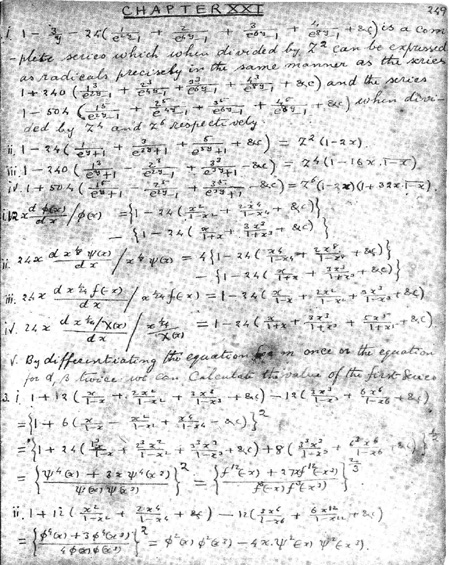 CHAPTER XXI 249
i. 1 - 3/y - 24(1/(e^{2y}-1) + 2/(e^{4y}-1) + 3/(e^{6y}-1) + 4/(e^{8y}-1) + &c) is a com
-plete series which when divided by z² can be expressed
as radicals precisely in the same manner as the series
1 + 240(1³/(e^{2y}-1) + 2³/(e^{4y}-1) + 3³/(e^{6y}-1) + 4³/(e^{8y}-1) + &c) and the series
1 - 504(1⁵/(e^{2y}-1) + 2⁵/(e^{4y}-1) + 3⁵/(e^{6y}-1) + 4⁵/(e^{8y}-1) + &c) when divi-
ded by z⁴ and z⁶ respectively.
ii. 1 - 24( + &c) = z²(1-2x).
iii. 1 - 240( - &c) = z⁴(1-16x.1-x).
iv. 1 + 504( - &c) = z⁶(1-2x)(1+32x.1-x).
i. 12x dφ(x)/dx / φ(x) = {1 - 24(x²/(1-x²) + 2x⁴/(1-x⁴) + &c)}
- {1 - 24(x/(1+x) + 3x³/(1+x³) + &c)}
ii. 24x d x^{}ψ(x)/dx / x^{}ψ(x) = 4{1 - 24( + &c)}
- {1 - 24(x/(1+x) + 3x³/(1+x³) + &c)}
iii. 24x d x^{1/24}f(-x)/dx / x^{1/24}f(-x) = 1 - 24(x/(1-x) + 2x²/(1-x²) + 3x³/(1-x³) + &c)
iv. 24x d x^{1/24}/χ(x)/dx / x^{1/24}/χ(x) = 1 - 24(x/(1+x) + 3x³/(1+x³) + 5x⁵/(1+x⁵) + &c)
v. By differentiating the equation for m once or the equation
for α, β twice we can calculate the value of the first series
i. 1 + 12(x/(1-x) + 2x²/(1-x²) + + &c) - 12(3x³/(1-x³) + 6x⁶/(1-x⁶) + &c)
= {1 + 6(x/(1-x) - x²/(1-x²) + x⁴/(1-x⁴) - &c)}²
= {1 + 24( + &c) + 8( + &c)}
= {(ψ⁴(x) + 3xψ⁴(x³))/(ψ(x)ψ(x³))}² = {(f¹²(-x) + 27xf¹²(-x³))/(f³(-x)f³(-x³))}^{2/3}
ii. 1 + 12(x²/(1-x²) + 2x⁴/(1-x⁴) + &c) - 12(3x⁶/(1-x⁶) + 6x¹²/(1-x¹²) + &c)
= {(φ⁴(x) + 3φ⁴(x³))/(4φ(x)φ(x³))}² = φ²(x)φ²(x³) - 4x.ψ²(x)ψ²(x³).